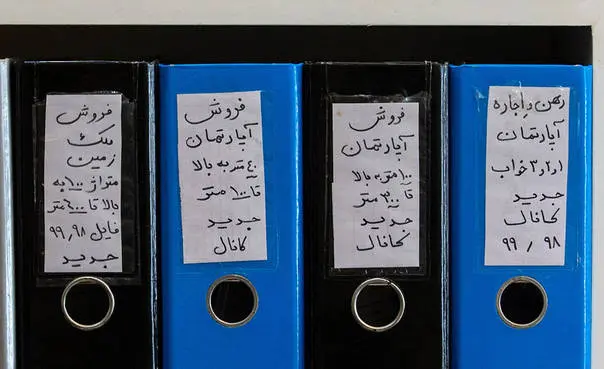 رهن و اجاره
آپارتمان
۱و۲و۳ خواب
جدید
کانال
۹۸ / ۹۹
فروش
آپارتمان
۱۰۰ متر به بالا
تا ۳۰۰ متر
جدید
کانال
فروش
آپارتمان
۴۰ متر به بالا
تا ۱۰۰ متر
جدید
کانال
فروش
ملک
زمین
متراژ ۱۰۰ به
بالا تا متر
فایل ۹۸ , ۹۹
جدید